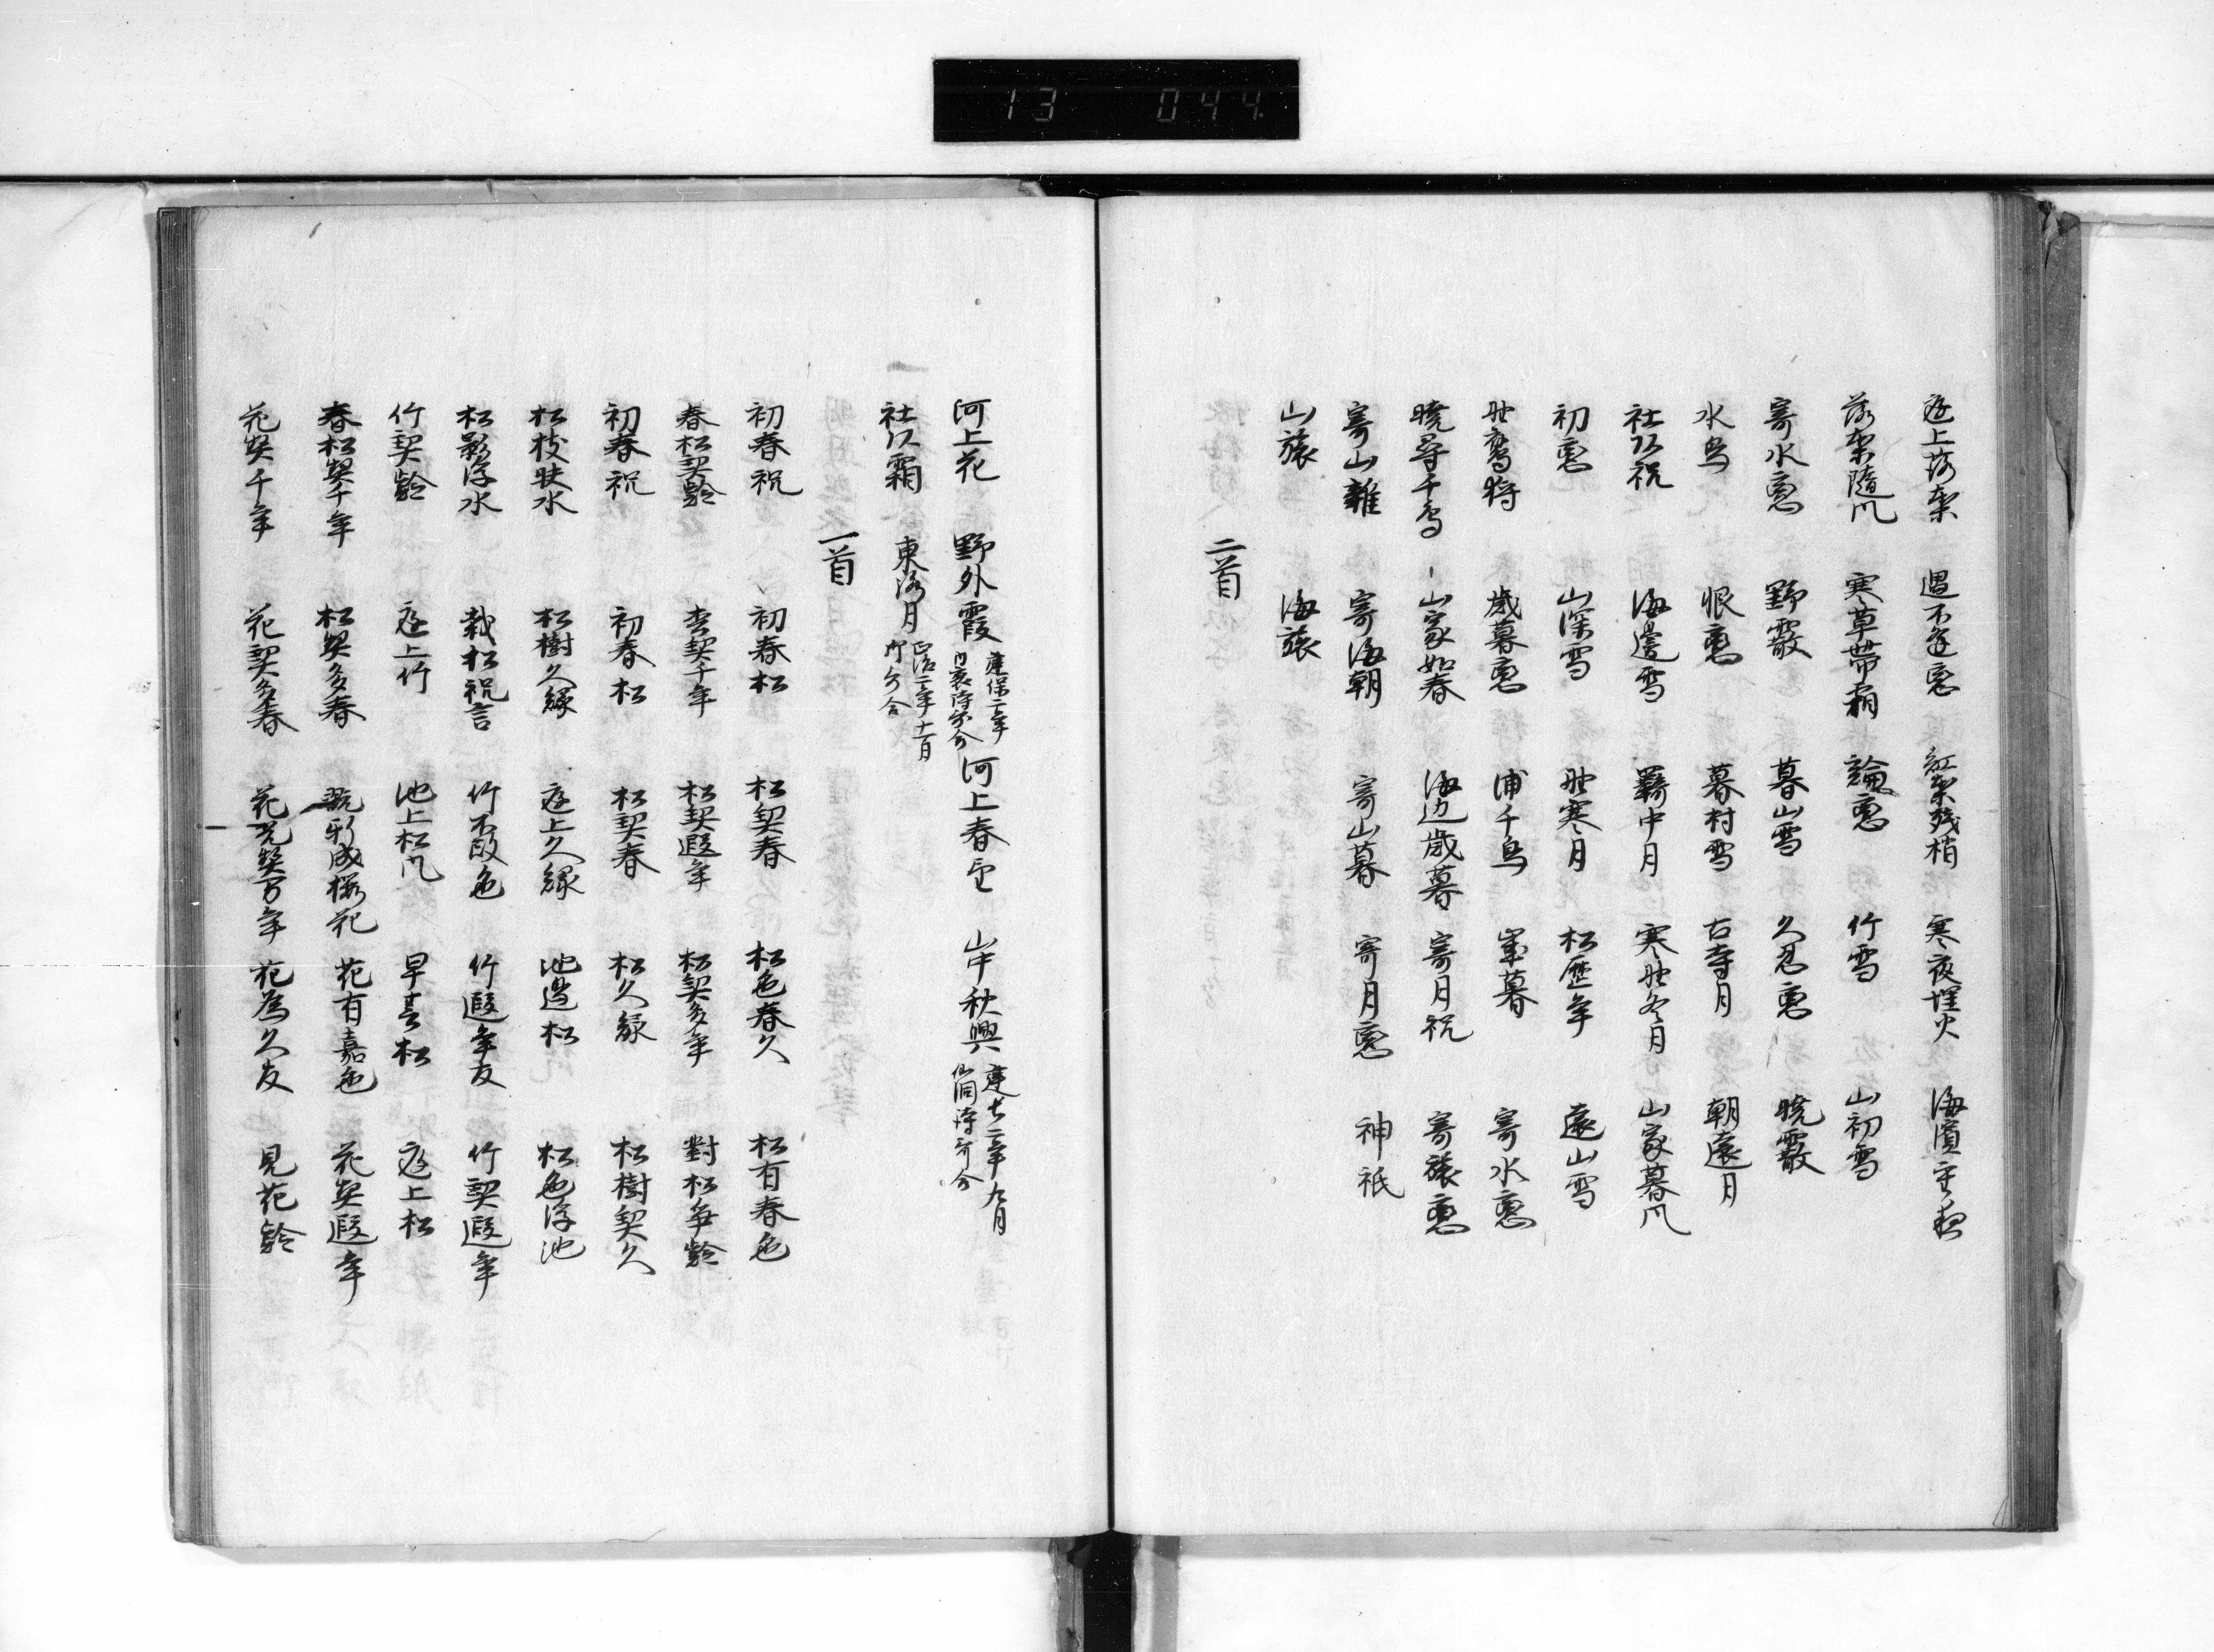 13 044
庭上落葉 遇不逢恋 紅葉残梢 寒夜埋火 海濱重夜
落葉随风 寒草帯霜 論恋 竹雪 山初雪
寄水恋 野霰 暮山雪 久忍恋 暁霰
水鳥 恨恋 暮村雪 古寺月 朝遠月
社头祝 海邊雪 羇中月 寒野冬月 山家暮风
初恋 山深雪 野寒月 松歴年 遠山雪
野鷹狩 歳暮恋 浦千鳥 歳暮 寄水恋
暁尋千鳥 山家如春 海边歳暮 寄月祝 寄旅恋
寄山雜 寄海朝 寄山暮 寄月恋 神祇
山旅 海旅
二首
河上花 野外霞 建保二年内裏詩哥合 河上春望 岸秋興 建长二年九月仙洞詩哥合
社头霜 東路月 正治二年十一月御哥合
一首
初春祝 初春松 松契春 松色春久 松有春色
春松契齢 杏契千年 松契遐年 松契多年 對松争齢
初春祝 初春松 松契春 松久緑 松樹契久
松枝映水 松樹久緑 庭上久緑 池邊松 松色浮池
松影浮水 栽松祝言 竹不改色 竹遐年友 竹契遐年
竹契齢 庭上竹 池上松风 早春松 庭上松
春松契千年 松契多春 翫新成櫻花 花有嘉色 花契遐年
花契千年 花契多春 花光契万年 花為久友 見花齢